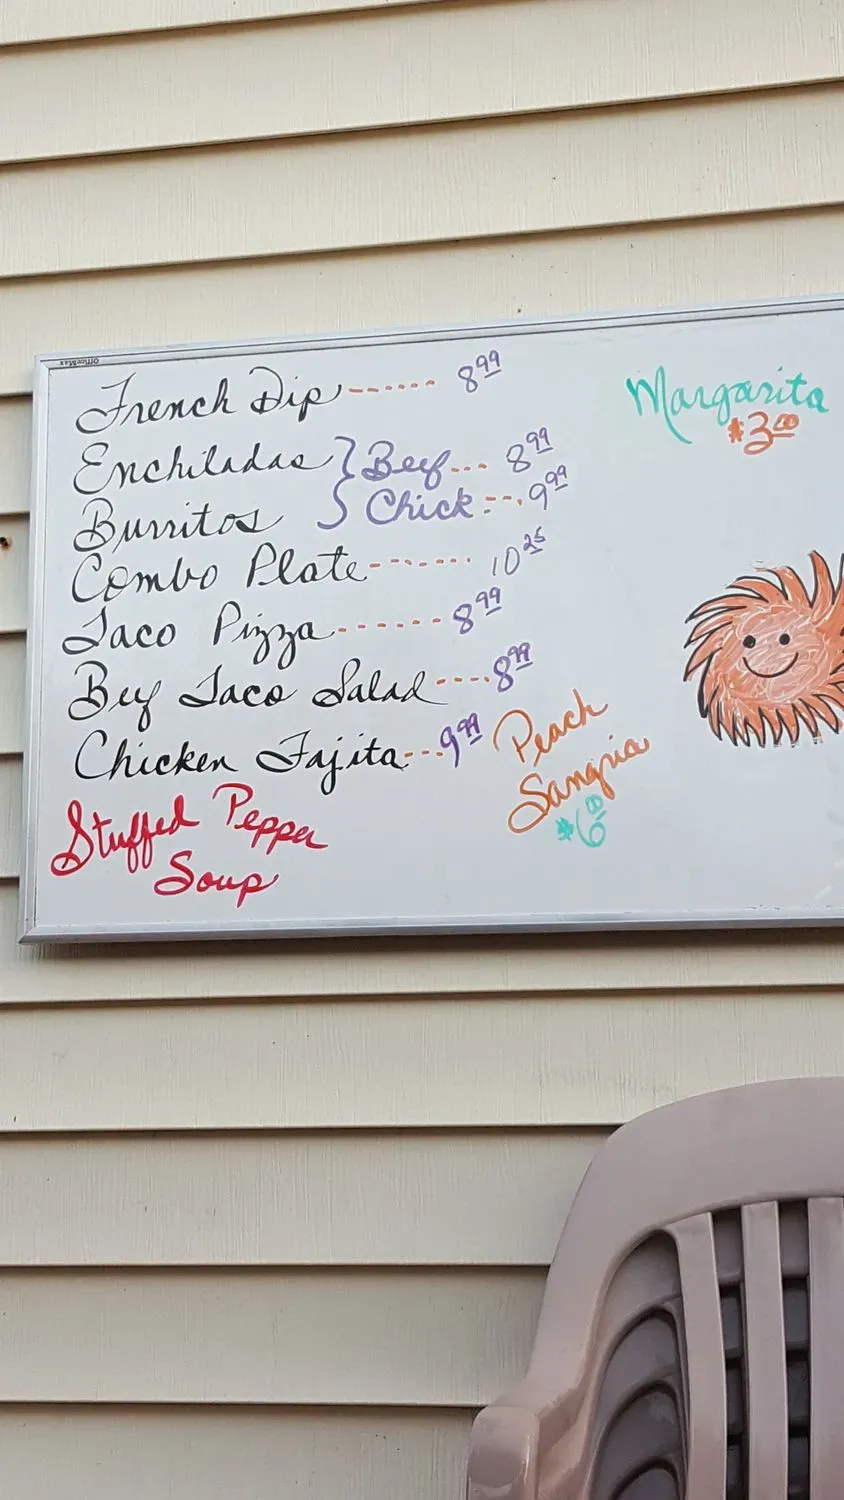 OfficeMax
French Dip ------ 8.99
Enchiladas } Beef... 8.99
Burritos } Chick --.. 9.99
Combo Plate ------- 10.25
Taco Pizza ------- 8.99
Beef Taco Salad ---- 8.99
Chicken Fajita --- 9.99
Stuffed Pepper
Soup
Margarita
$3.00
Peach
Sangria
$6.00